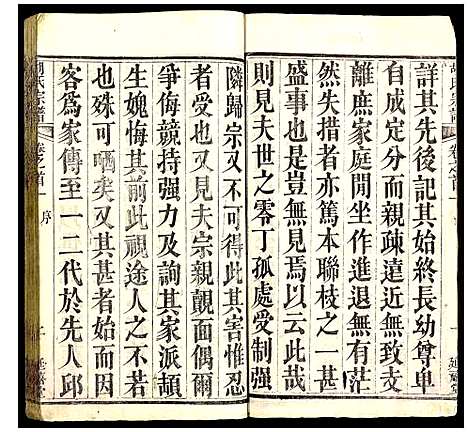 胡氏宗譜
卷之首
詳其先後記其始終長幼尊卑
自成定分而親疎遠近無致交
離庶家庭閒坐作進退無有茫
然失措者亦篤本聯枝之一
盛事也是豈無見焉以云此哉
則見夫世之零丁孤處受制强
隣歸宗又不可得此其害惟忍
者受也又見夫宗親覿面偶爾
爭侮競持强力及詢其家派頡
生媿悔其前此視途人之不若
也殊可哂矣又其甚者始不自
客爲家傳至一二代於先人邱
胡氏宗譜
卷之首
序